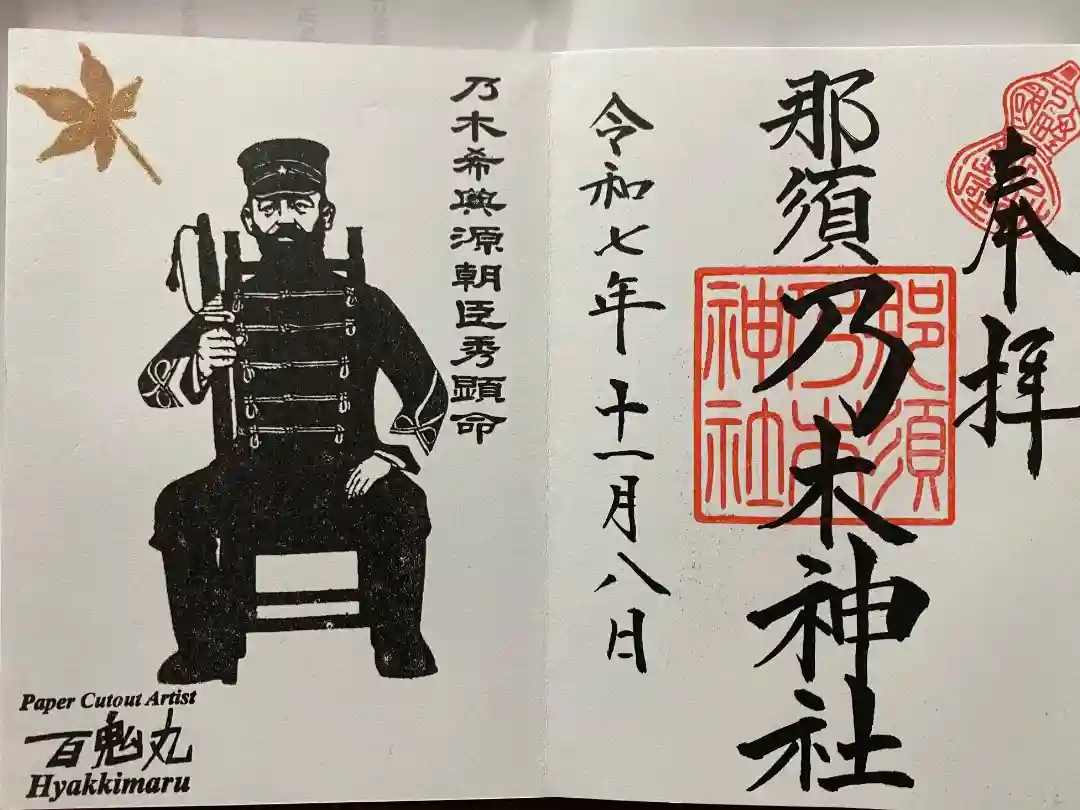 奉拝
那須乃木神社
那須
乃木
神社
令和七年 十一月八日
乃木希典源朝臣秀顕命
Paper Cutout Artist
百鬼丸
Hyakkimaru